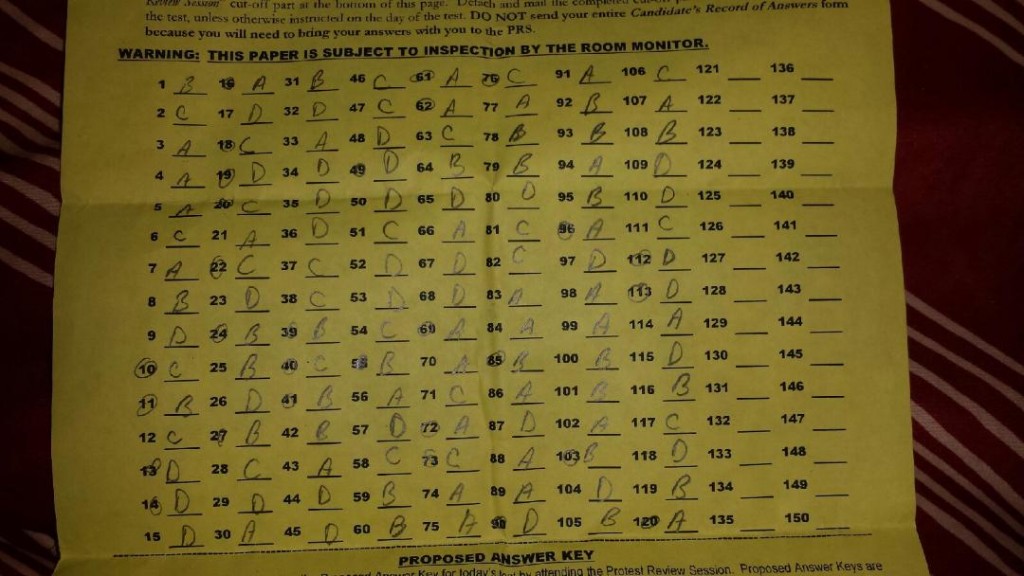 cut-off part at the bottom of this page. Detach and mail the completed
the test, unless otherwise instructed on the day of the test. DO NOT send your entire Candidate's Record of Answers form
because you will need to bring your answers with you to the PRS.
WARNING: THIS PAPER IS SUBJECT TO INSPECTION BY THE ROOM MONITOR.
1 B 16 A 31 B 46 C 61 A 76 C 91 A 106 C 121 136
2 C 17 D 32 D 47 C 62 A 77 A 92 B 107 A 122 137
3 A 18 C 33 A 48 D 63 C 78 B 93 B 108 B 123 138
4 A 19 D 34 D 49 D 64 B 79 B 94 A 109 D 124 139
5 A 20 C 35 D 50 D 65 D 80 D 95 B 110 D 125 140
6 C 21 A 36 D 51 C 66 A 81 C 96 A 111 C 126 141
7 A 22 C 37 C 52 D 67 D 82 C 97 D 112 D 127 142
8 B 23 D 38 C 53 D 68 D 83 A 98 A 113 D 128 143
9 D 24 B 39 B 54 C 69 A 84 A 99 A 114 A 129 144
10 C 25 B 40 C 55 B 70 A 85 B 100 B 115 D 130 145
11 B 26 D 41 B 56 A 71 C 86 A 101 B 116 B 131 146
12 C 27 B 42 B 57 D 72 A 87 D 102 A 117 C 132 147
13 D 28 C 43 A 58 C 73 C 88 A 103 B 118 D 133 148
14 D 29 D 44 D 59 B 74 A 89 A 104 D 119 B 134 149
15 D 30 A 45 D 60 B 75 A 90 D 105 B 120 A 135 150
PROPOSED ANSWER KEY
Answer Key for today's test by attending the Protest Review Session. Proposed Answer Keys are